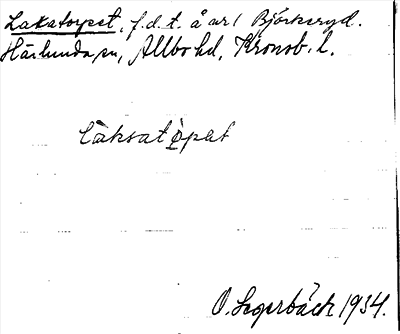 Lakatorpet, f.d.t. å arl Björkeryd.
Härlunda sn, Allbo hd, Kronob. l.
O. Segerbäck 1934.